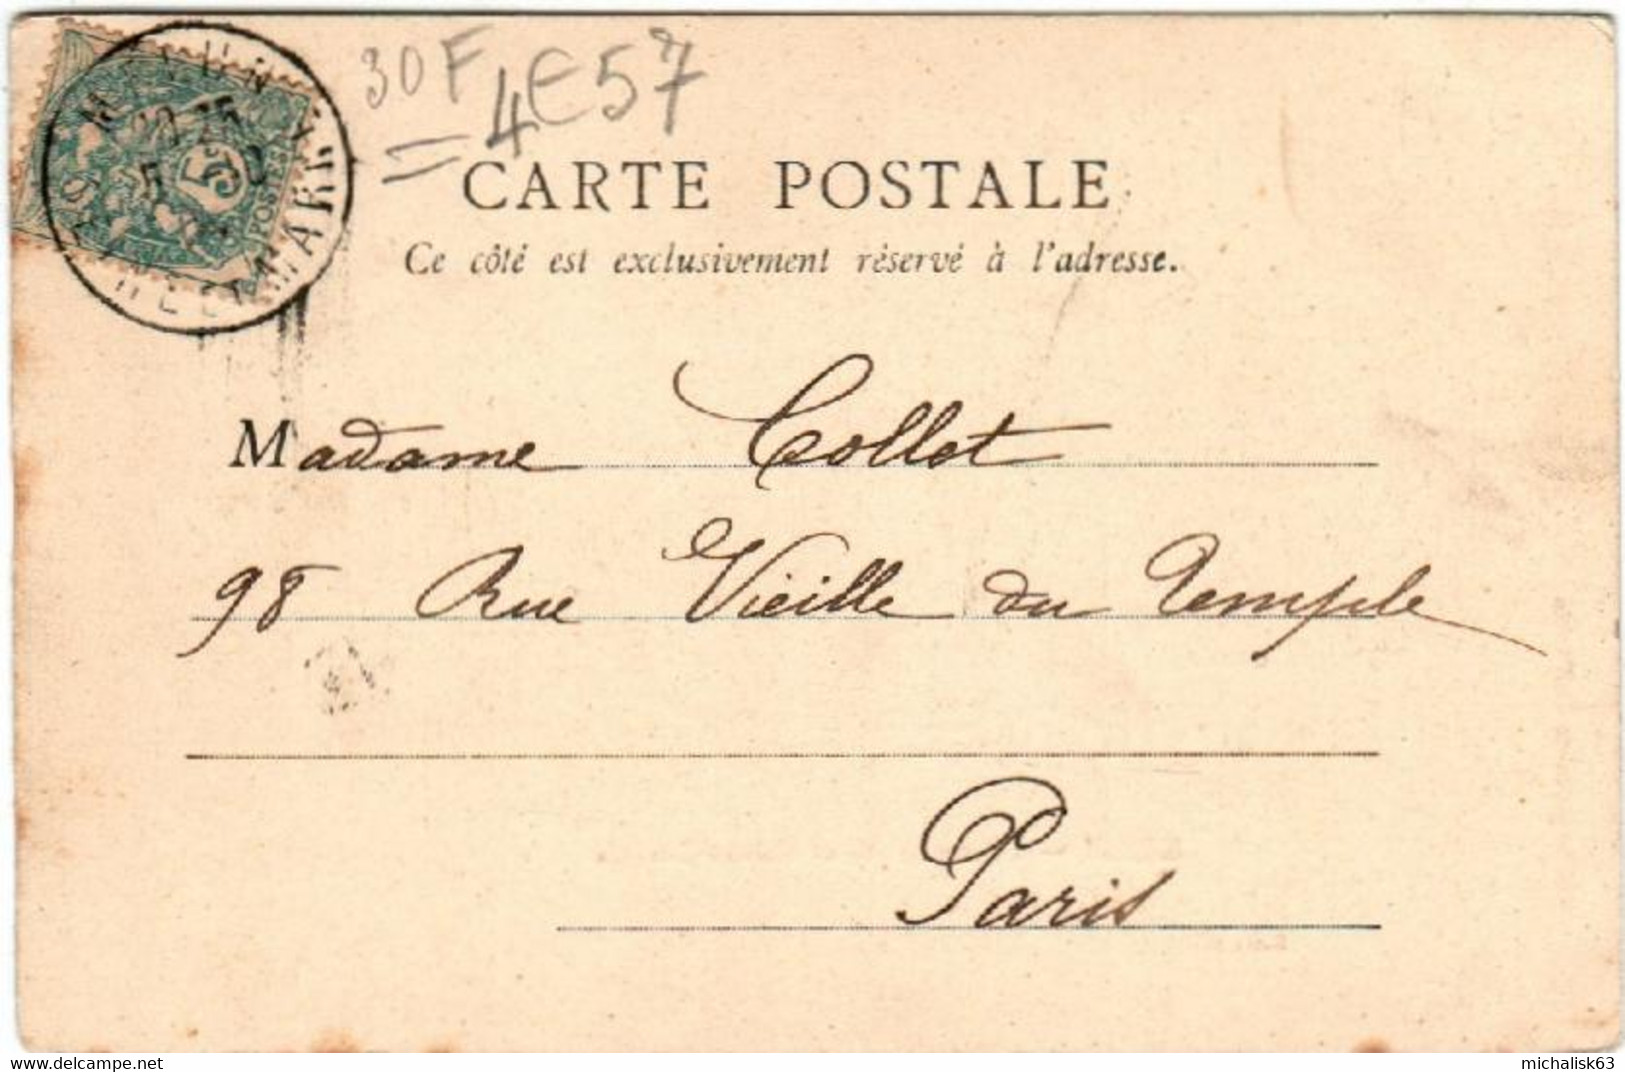 MELUN
10 25
5
POSTES
30F
= 4€57
CARTE POSTALE
Ce côté est exclusivement réservé à l'adresse.
Madame Collet
98 Rue Vieille du Temple
Paris
delcampe.net
michalisk63